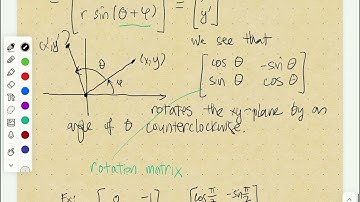 = [r sin(θ+φ)] = [y']
(x',y') θ (x,y) we see that
φ
[cos θ -sin θ
sin θ cos θ]
rotates the xy-plane by an
angle of θ counterclockwise.
rotation matrix
Ex: [0 -1] [cos π/2 -sin π/2]